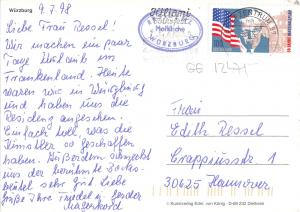 Würzburg
9.7.98
Liebe Frau Ressel!
Wir machen ein paar
Tage Urlaub im
Frankenland. Heute
waren wir in Würzburg
und haben uns die
Residenz angesehen.
Einfach toll, was die
Künstler so geschaffen
haben. Außerdem schmeckt
uns der berühmte Bocks-
beutel sehr gut. Liebe
Grüße Ihre
Kiliani
Volksfest
WÜRZBURG
100
GG 1271
Frau
Edith Ressel
30625 Hannover
© Kunstverlag Edm. von König · D-69 232 Dielheim